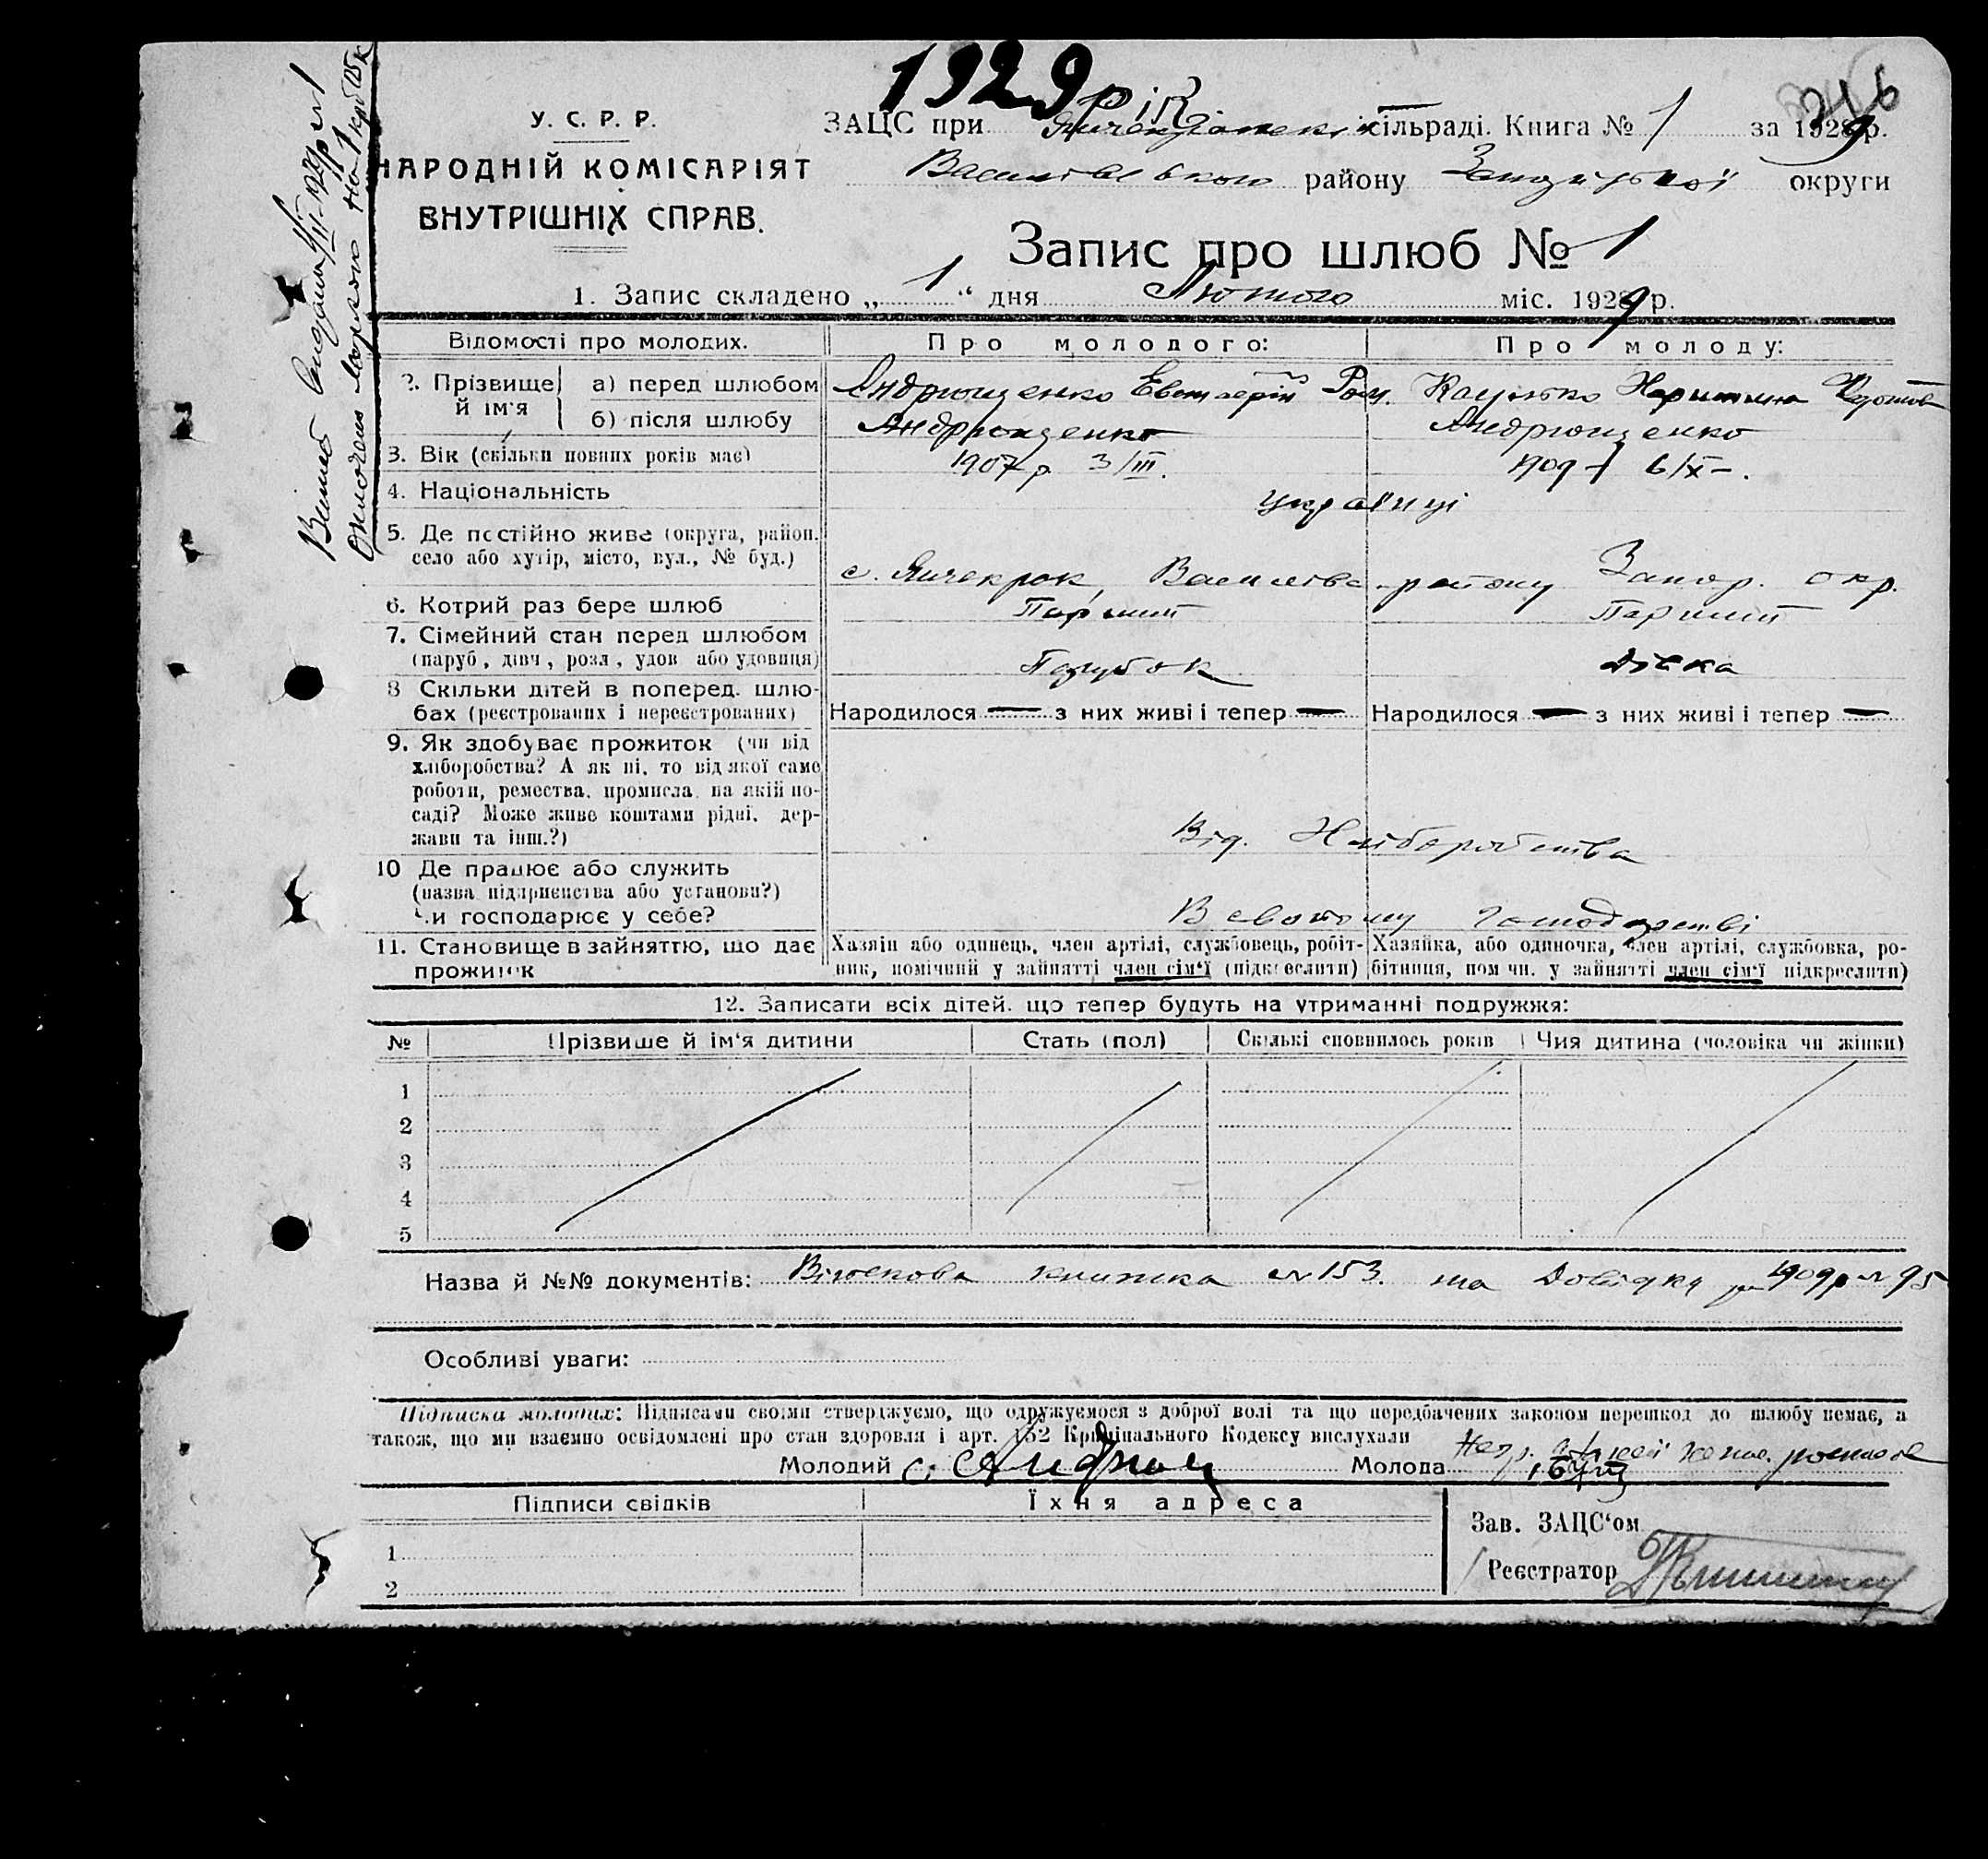 1929 рік
216
У. С. Р. Р.
НАРОДНІЙ КОМІСАРІЯТ
ВНУТРІШНІХ СПРАВ.
ЗАЦС при сільраді. Книга № 1 за 1929 р.
Василівського району Запорізької округи
Запис про шлюб № 1
1. Запис складено „ 1 “ дня Лютого міс. 1929 р.
Відомості про молодих. Про молодого: Про молоду:
2. Прізвище й ім'я
а) перед шлюбом Андрющенко Ром.
б) після шлюбу Андрющенко Андрющенко
3. Вік (скільки повних років має) 1907 р 3/III. 1909 6/X
4. Національність українці
5. Де постійно живе (округа, район,
село або хутір, місто, вул., № буд.) с. Янчекрак, Василівс. району Запор. окр.
6. Котрий раз бере шлюб Перший Перший
7. Сімейний стан перед шлюбом
(паруб, дівч, розл, удов або удовиця) Парубок Дівка
8 Скільки дітей в поперед. шлю-
бах (реєстрованих і нереєстрованих) Народилося — з них живі і тепер — Народилося — з них живі і тепер —
9. Як здобуває прожиток (чи від
хліборобства? А як ні, то від якої саме
роботи, ремества, промисла, на якій по-
саді? Може живе коштами рідні, дер-
жави та інш.?) Від Хліборобства
10 Де працює або служить
(назва підприємства або установи?)
Чи господарює у себе? В своєму господарстві
11. Становище в зайняттю, що дає
прожиток
Хазяїн або одинець, член артілі, службовець, робіт-
ник, помічний у зайнятті член сім'ї (підкреслити)
Хазяйка, або одиночка, член артілі, службовка, ро-
бітниця, пом чн. у зайнятті член сім'ї підкреслити)
12. Записати всіх дітей, що тепер будуть на утриманні подружжя:
№ Прізвище й ім'я дитини Стать (пол) Скількі сповнилось років Чия дитина (чоловіка чи жінки)
1
2
3
4
5
Назва й №№ документів: книжка № 153. та Довідка 1909 р № 95
Особливі уваги:
Підписка молодих: Підписами своїми стверджуємо, що одружуємося з доброї волі та що передбачених законом перешкод до шлюбу немає, а
також, що ми взаємно освідомлені про стан здоровля і арт. 152 Крімінального Кодексу вислухали
Молодий Андрющ Молода
Підписи свідків Їхня адреса
1
2
Зав. ЗАЦС'ом
Реєстратор